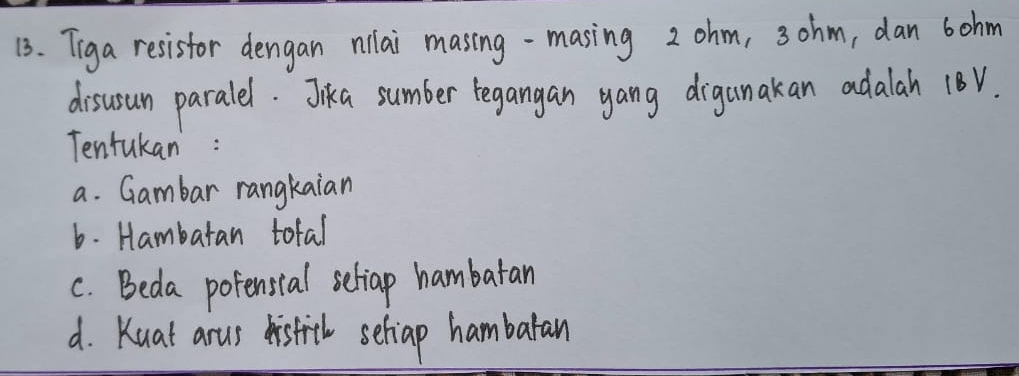 13. Tiga resistor dengan nilai masing - masing 2 ohm, 3 ohm, dan 6 ohm
disusun paralel. Jika sumber tegangan yang digunakan adalah 18 V.
Tentukan :
a. Gambar rangkaian
b. Hambatan total
c. Beda potensial setiap hambatan
d. Kuat arus listrik setiap hambatan